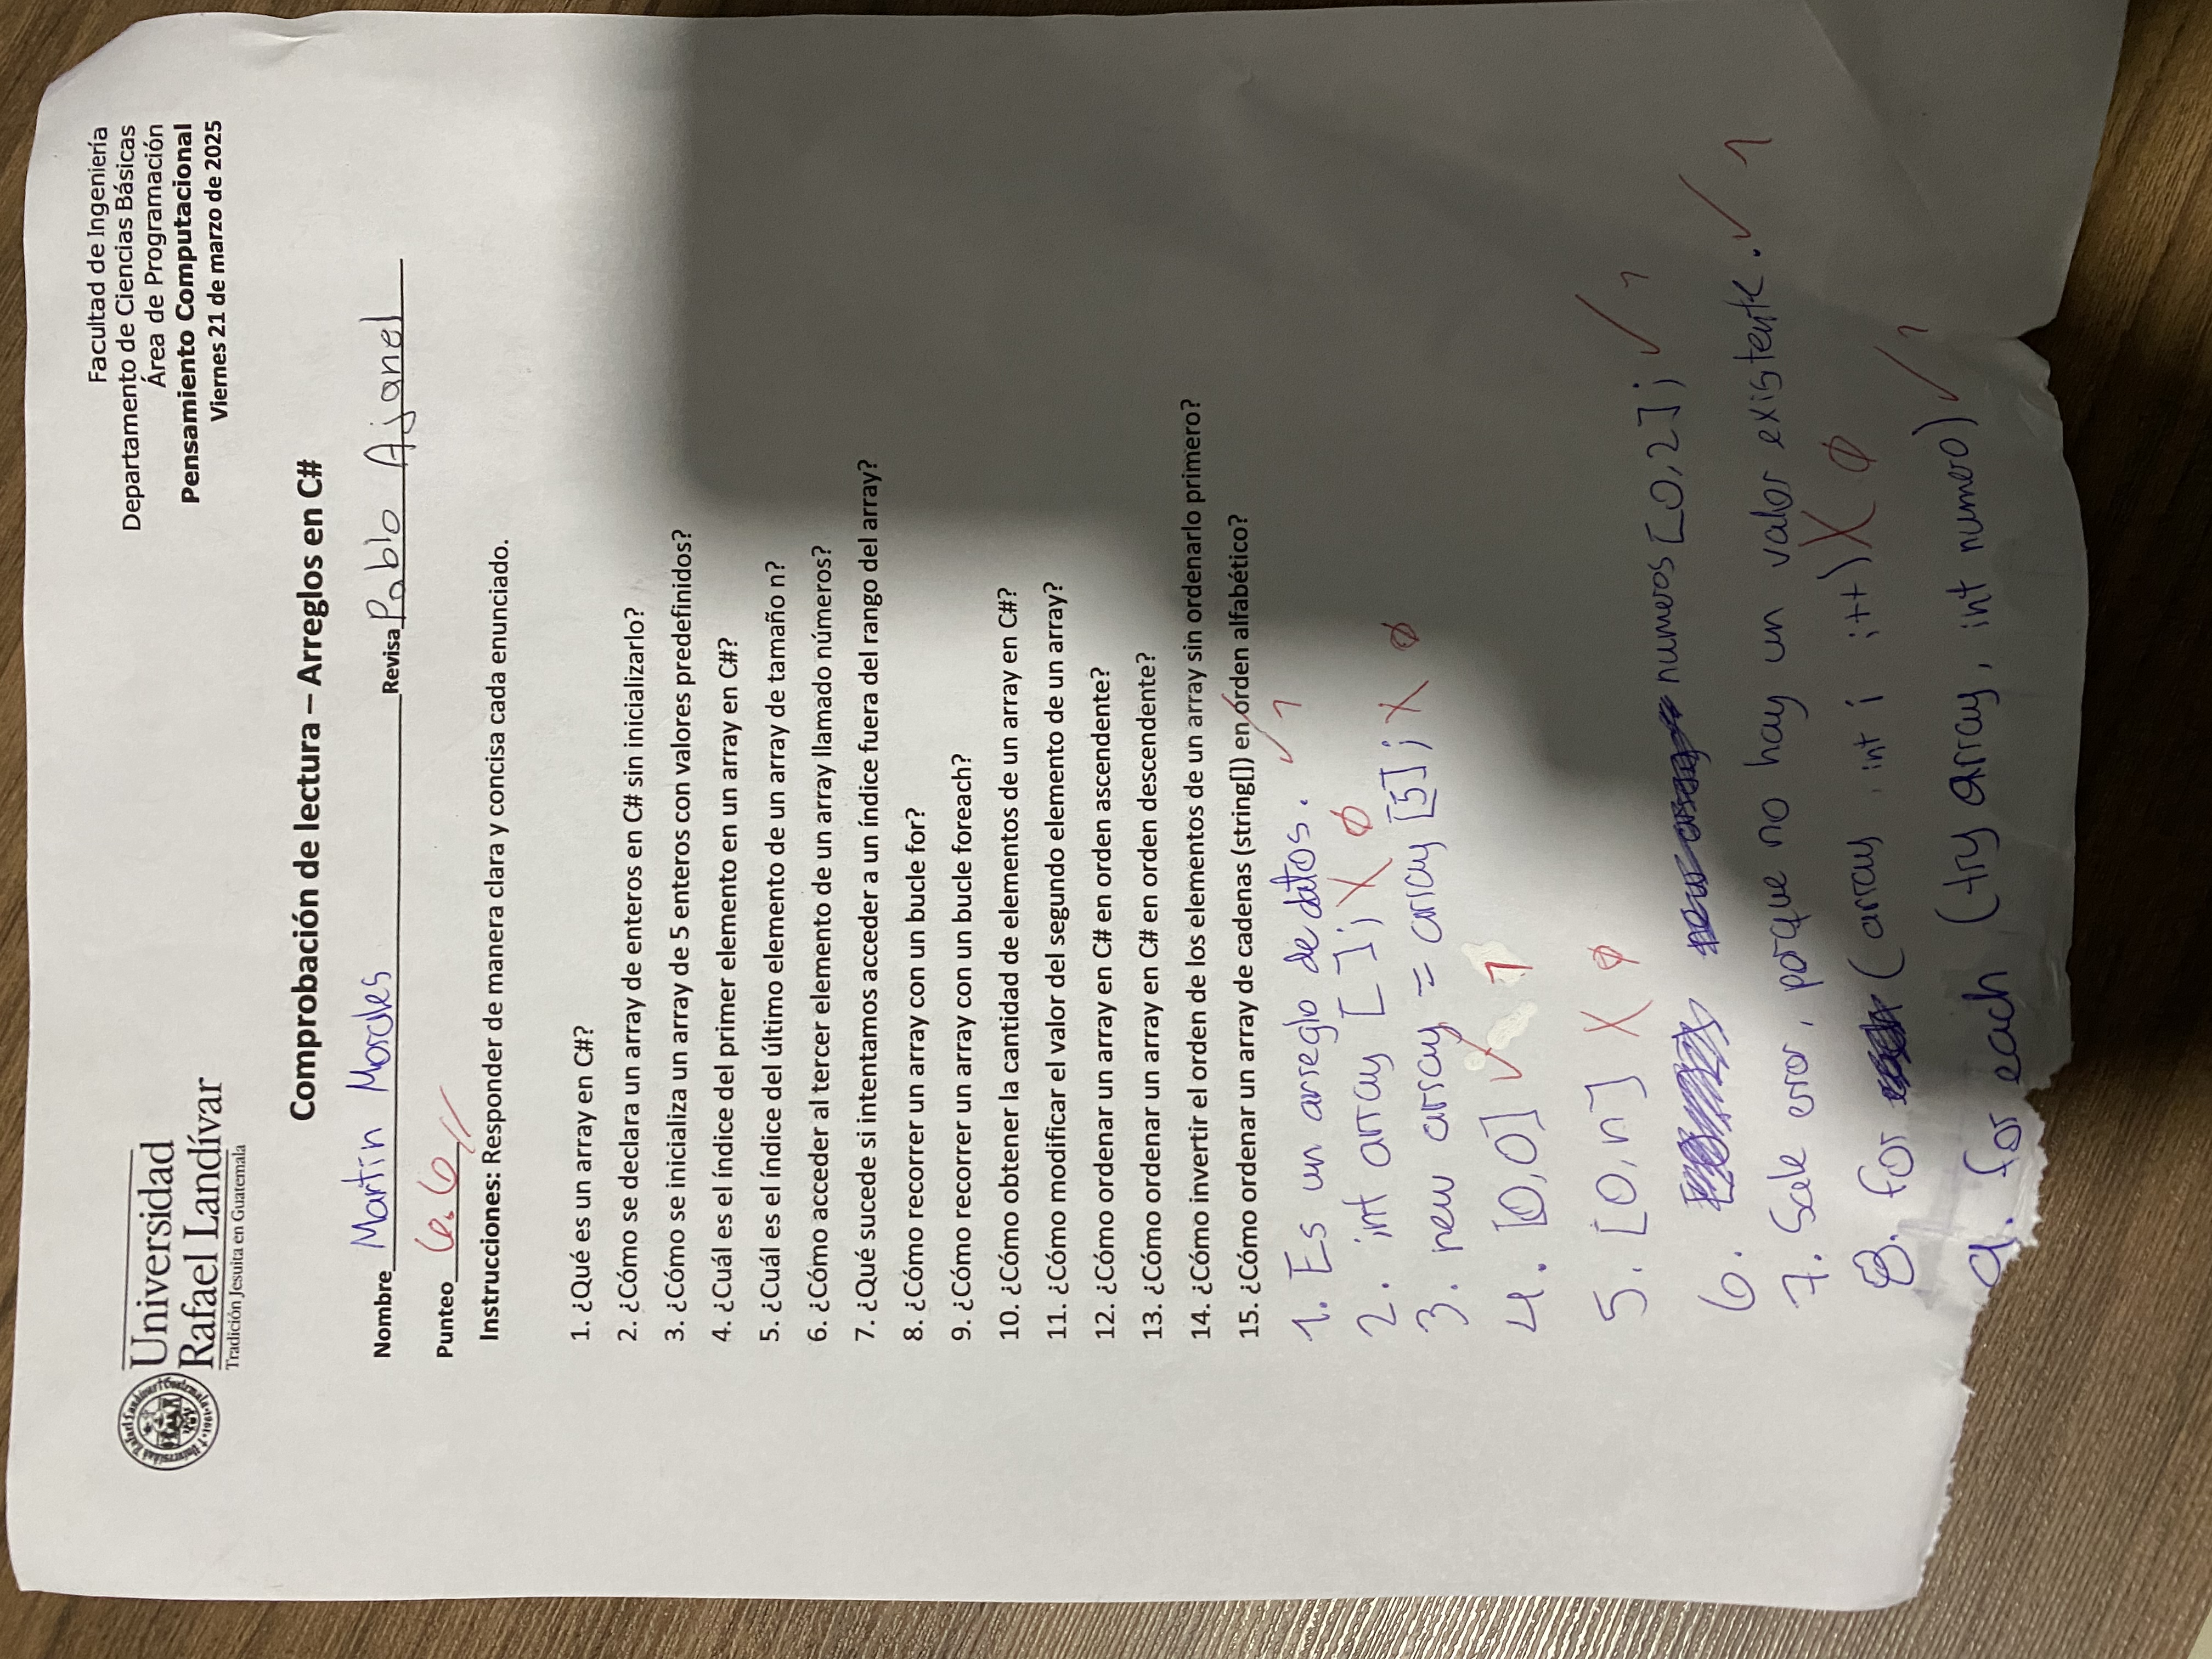 Universidad
Rafael Landívar
Tradición Jesuita en Guatemala
Facultad de Ingeniería
Departamento de Ciencias Básicas
Área de Programación
Pensamiento Computacional
Viernes 21 de marzo de 2025
Comprobación de lectura – Arreglos en C#
Nombre Martin Morales Revisa Pablo Ajanel
Punteo 6.6
Instrucciones: Responder de manera clara y concisa cada enunciado.
1. ¿Qué es un array en C#?
2. ¿Cómo se declara un array de enteros en C# sin inicializarlo?
3. ¿Cómo se inicializa un array de 5 enteros con valores predefinidos?
4. ¿Cuál es el índice del primer elemento en un array en C#?
5. ¿Cuál es el índice del último elemento de un array de tamaño n?
6. ¿Cómo acceder al tercer elemento de un array llamado números?
7. ¿Qué sucede si intentamos acceder a un índice fuera del rango del array?
8. ¿Cómo recorrer un array con un bucle for?
9. ¿Cómo recorrer un array con un bucle foreach?
10. ¿Cómo obtener la cantidad de elementos de un array en C#?
11. ¿Cómo modificar el valor del segundo elemento de un array?
12. ¿Cómo ordenar un array en C# en orden ascendente?
13. ¿Cómo ordenar un array en C# en orden descendente?
14. ¿Cómo invertir el orden de los elementos de un array sin ordenarlo primero?
15. ¿Cómo ordenar un array de cadenas (string[]) en orden alfabético?
1. Es un arreglo de datos. ✓ 1
2. int array [ ]; X 0
3. new array = array [5]; X 0
4. [0,0] ✓ 1
5. [0,n] X 0
6. numeros [0,2]; ✓ 1
7. Sale error, porque no hay un valor existente. ✓ 1
8. for (array , int i i++) X 0
9. for each (try array, int numero) ✓ 1